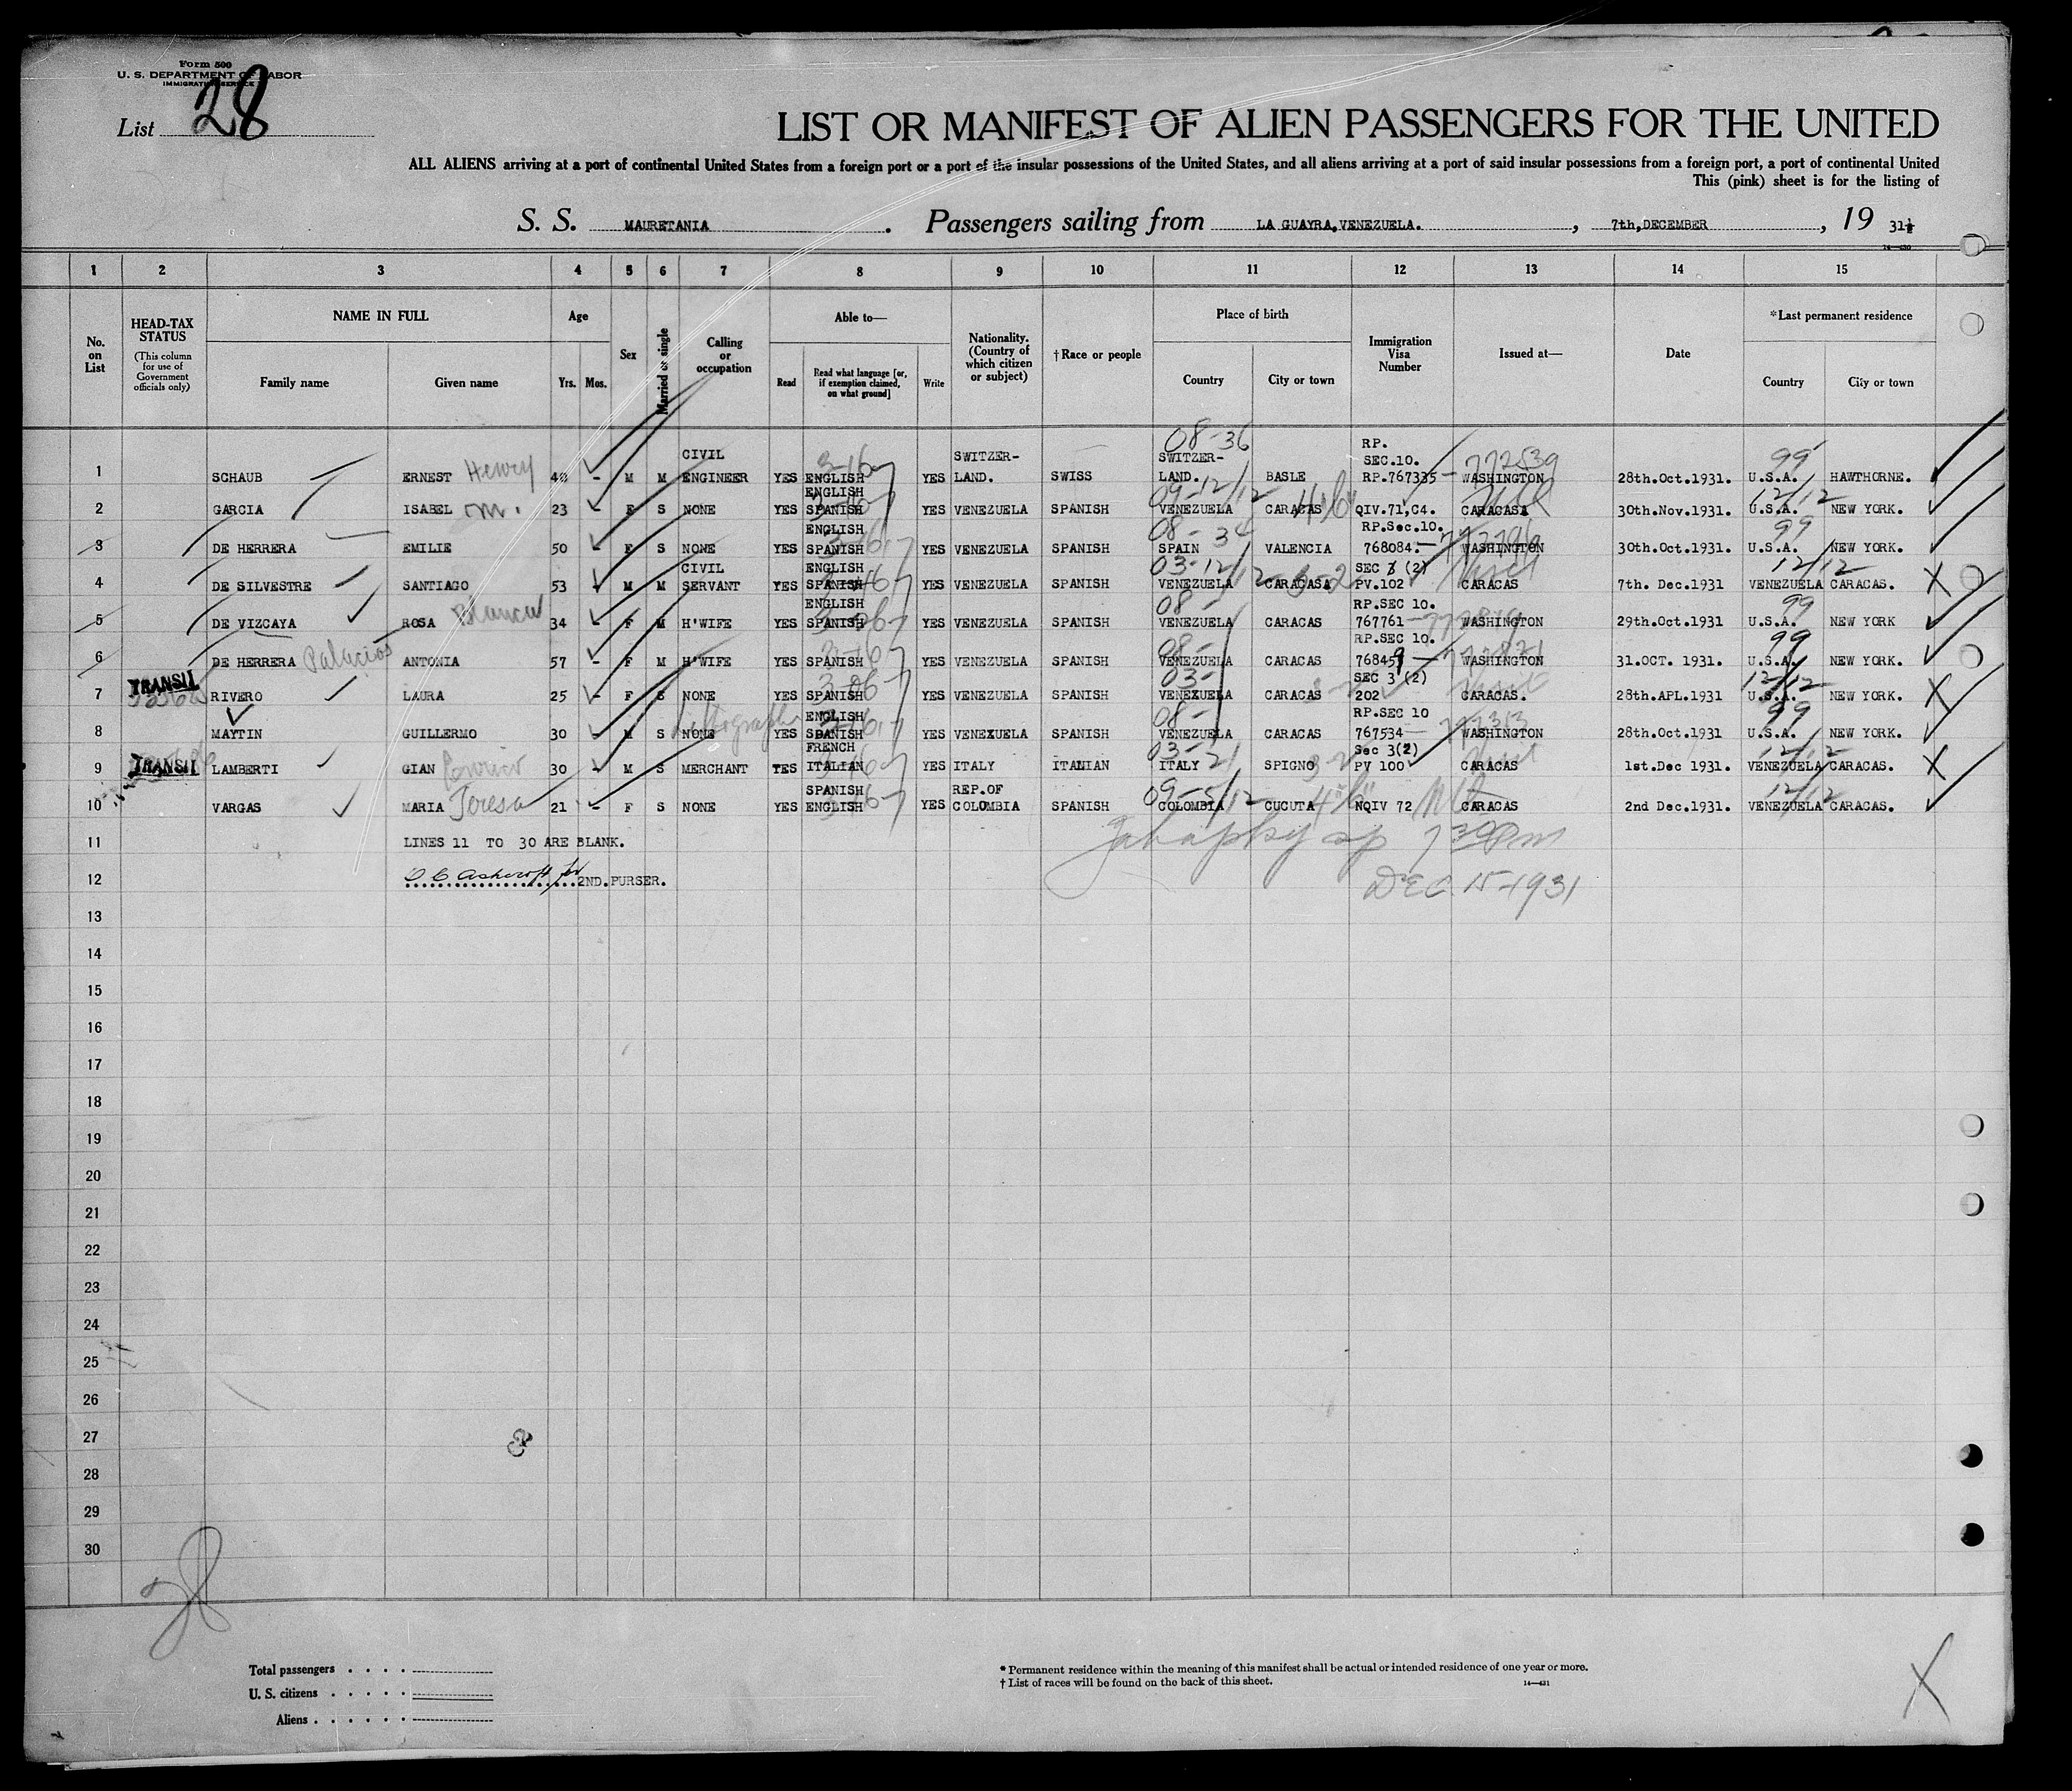 Form 500
U. S. DEPARTMENT OF LABOR
IMMIGRATION SERVICE
List 28
LIST OR MANIFEST OF ALIEN PASSENGERS FOR THE UNITED
ALL ALIENS arriving at a port of continental United States from a foreign port or a port of the insular possessions of the United States, and all aliens arriving at a port of said insular possessions from a foreign port, a port of continental United
This (pink) sheet is for the listing of
S. S. MAURETANIA. Passengers sailing from LA GUAYRA, VENEZUELA., 7th, DECEMBER, 19 31
1 2 3 4 5 6 7 8 9 10 11 12 13 14 15
No. on List
HEAD-TAX STATUS (This column for use of Government officials only)
NAME IN FULL Family name Given name
Age Yrs. Mos.
Sex
Married or single
Calling or occupation
Able to— Read Read what language [or, if exemption claimed, on what ground] Write
Nationality. (Country of which citizen or subject)
†Race or people
Place of birth Country City or town
Immigration Visa Number
Issued at—
Date
*Last permanent residence Country City or town
1 SCHAUB ERNEST Henry - M M CIVIL ENGINEER YES ENGLISH YES SWITZER-LAND. SWISS 08-36 SWITZER-LAND. BASLE RP. SEC.10. RP.767335 772539 WASHINGTON 28th.Oct.1931. 99 U.S.A. HAWTHORNE.
2 GARCIA ISABEL m. 23 F S NONE YES ENGLISH SPANISH YES VENEZUELA SPANISH 09-12/12 VENEZUELA CARACAS QIV.71,C4. CARACAS 30th.Nov.1931. 12/12 U.S.A. NEW YORK.
3 DE HERRERA EMILIE 50 - F S NONE YES ENGLISH SPANISH YES VENEZUELA SPANISH 08-34 SPAIN VALENCIA RP.Sec.10. 768084. WASHINGTON 30th.Oct.1931. 99 U.S.A. NEW YORK.
4 DE SILVESTRE SANTIAGO 53 M M CIVIL SERVANT YES ENGLISH SPANISH YES VENEZUELA SPANISH 03-12/12 VENEZUELA CARACAS SEC 3 (2) PV.102 CARACAS 7th. Dec.1931 12/12 VENEZUELA CARACAS. X
5 DE VIZCAYA ROSA 34 - F M H'WIFE YES ENGLISH SPANISH YES VENEZUELA SPANISH 08- VENEZUELA CARACAS RP.SEC 10. 767761 WASHINGTON 29th.Oct.1931 99 U.S.A. NEW YORK
6 DE HERRERA Palacios ANTONIA 57 - F M H'WIFE YES SPANISH YES VENEZUELA SPANISH 08- VENEZUELA CARACAS RP.SEC 10. 768459 WASHINGTON 31.OCT. 1931. 99 U.S.A. NEW YORK.
7 TRANSIT RIVERO LAURA 25 - F S NONE YES SPANISH YES VENEZUELA SPANISH 03- VENEZUELA CARACAS SEC 3 (2) 202 CARACAS. 28th.APL.1931 12/12 U.S.A. NEW YORK. X
8 MAYTIN GUILLERMO 30 - M S NONE YES ENGLISH SPANISH YES VENEXUELA SPANISH 08- VENEZUELA CARACAS RP.SEC 10 767534 WASHINGTON 28th.Oct.1931 99 U.S.A. NEW YORK.
9 TRANSIT LAMBERTI GIAN 30 - M S MERCHANT YES FRENCH ITALIAN YES ITALY ITALIAN 03-21 ITALY SPIGNO Sec 3(2) PV 100 CARACAS 1st.Dec 1931. 12/12 VENEZUELA CARACAS. X
10 VARGAS MARIA Teresa 21 - F S NONE YES SPANISH ENGLISH YES REP.OF COLOMBIA SPANISH 09-5/12 COLOMBIA CUCUTA NQIV 72 CARACAS 2nd Dec.1931. 12/12 VENEZUELA CARACAS.
11 LINES 11 TO 30 ARE BLANK. 7 30 Pm
12 Ashcroft 2ND.PURSER. DEC. 15-1931
13
14
15
16
17
18
19
20
21
22
23
24
25
26
27
28
29
30
28
Total passengers
U. S. citizens
Aliens
* Permanent residence within the meaning of this manifest shall be actual or intended residence of one year or more.
† List of races will be found on the back of this sheet.
14—431
X